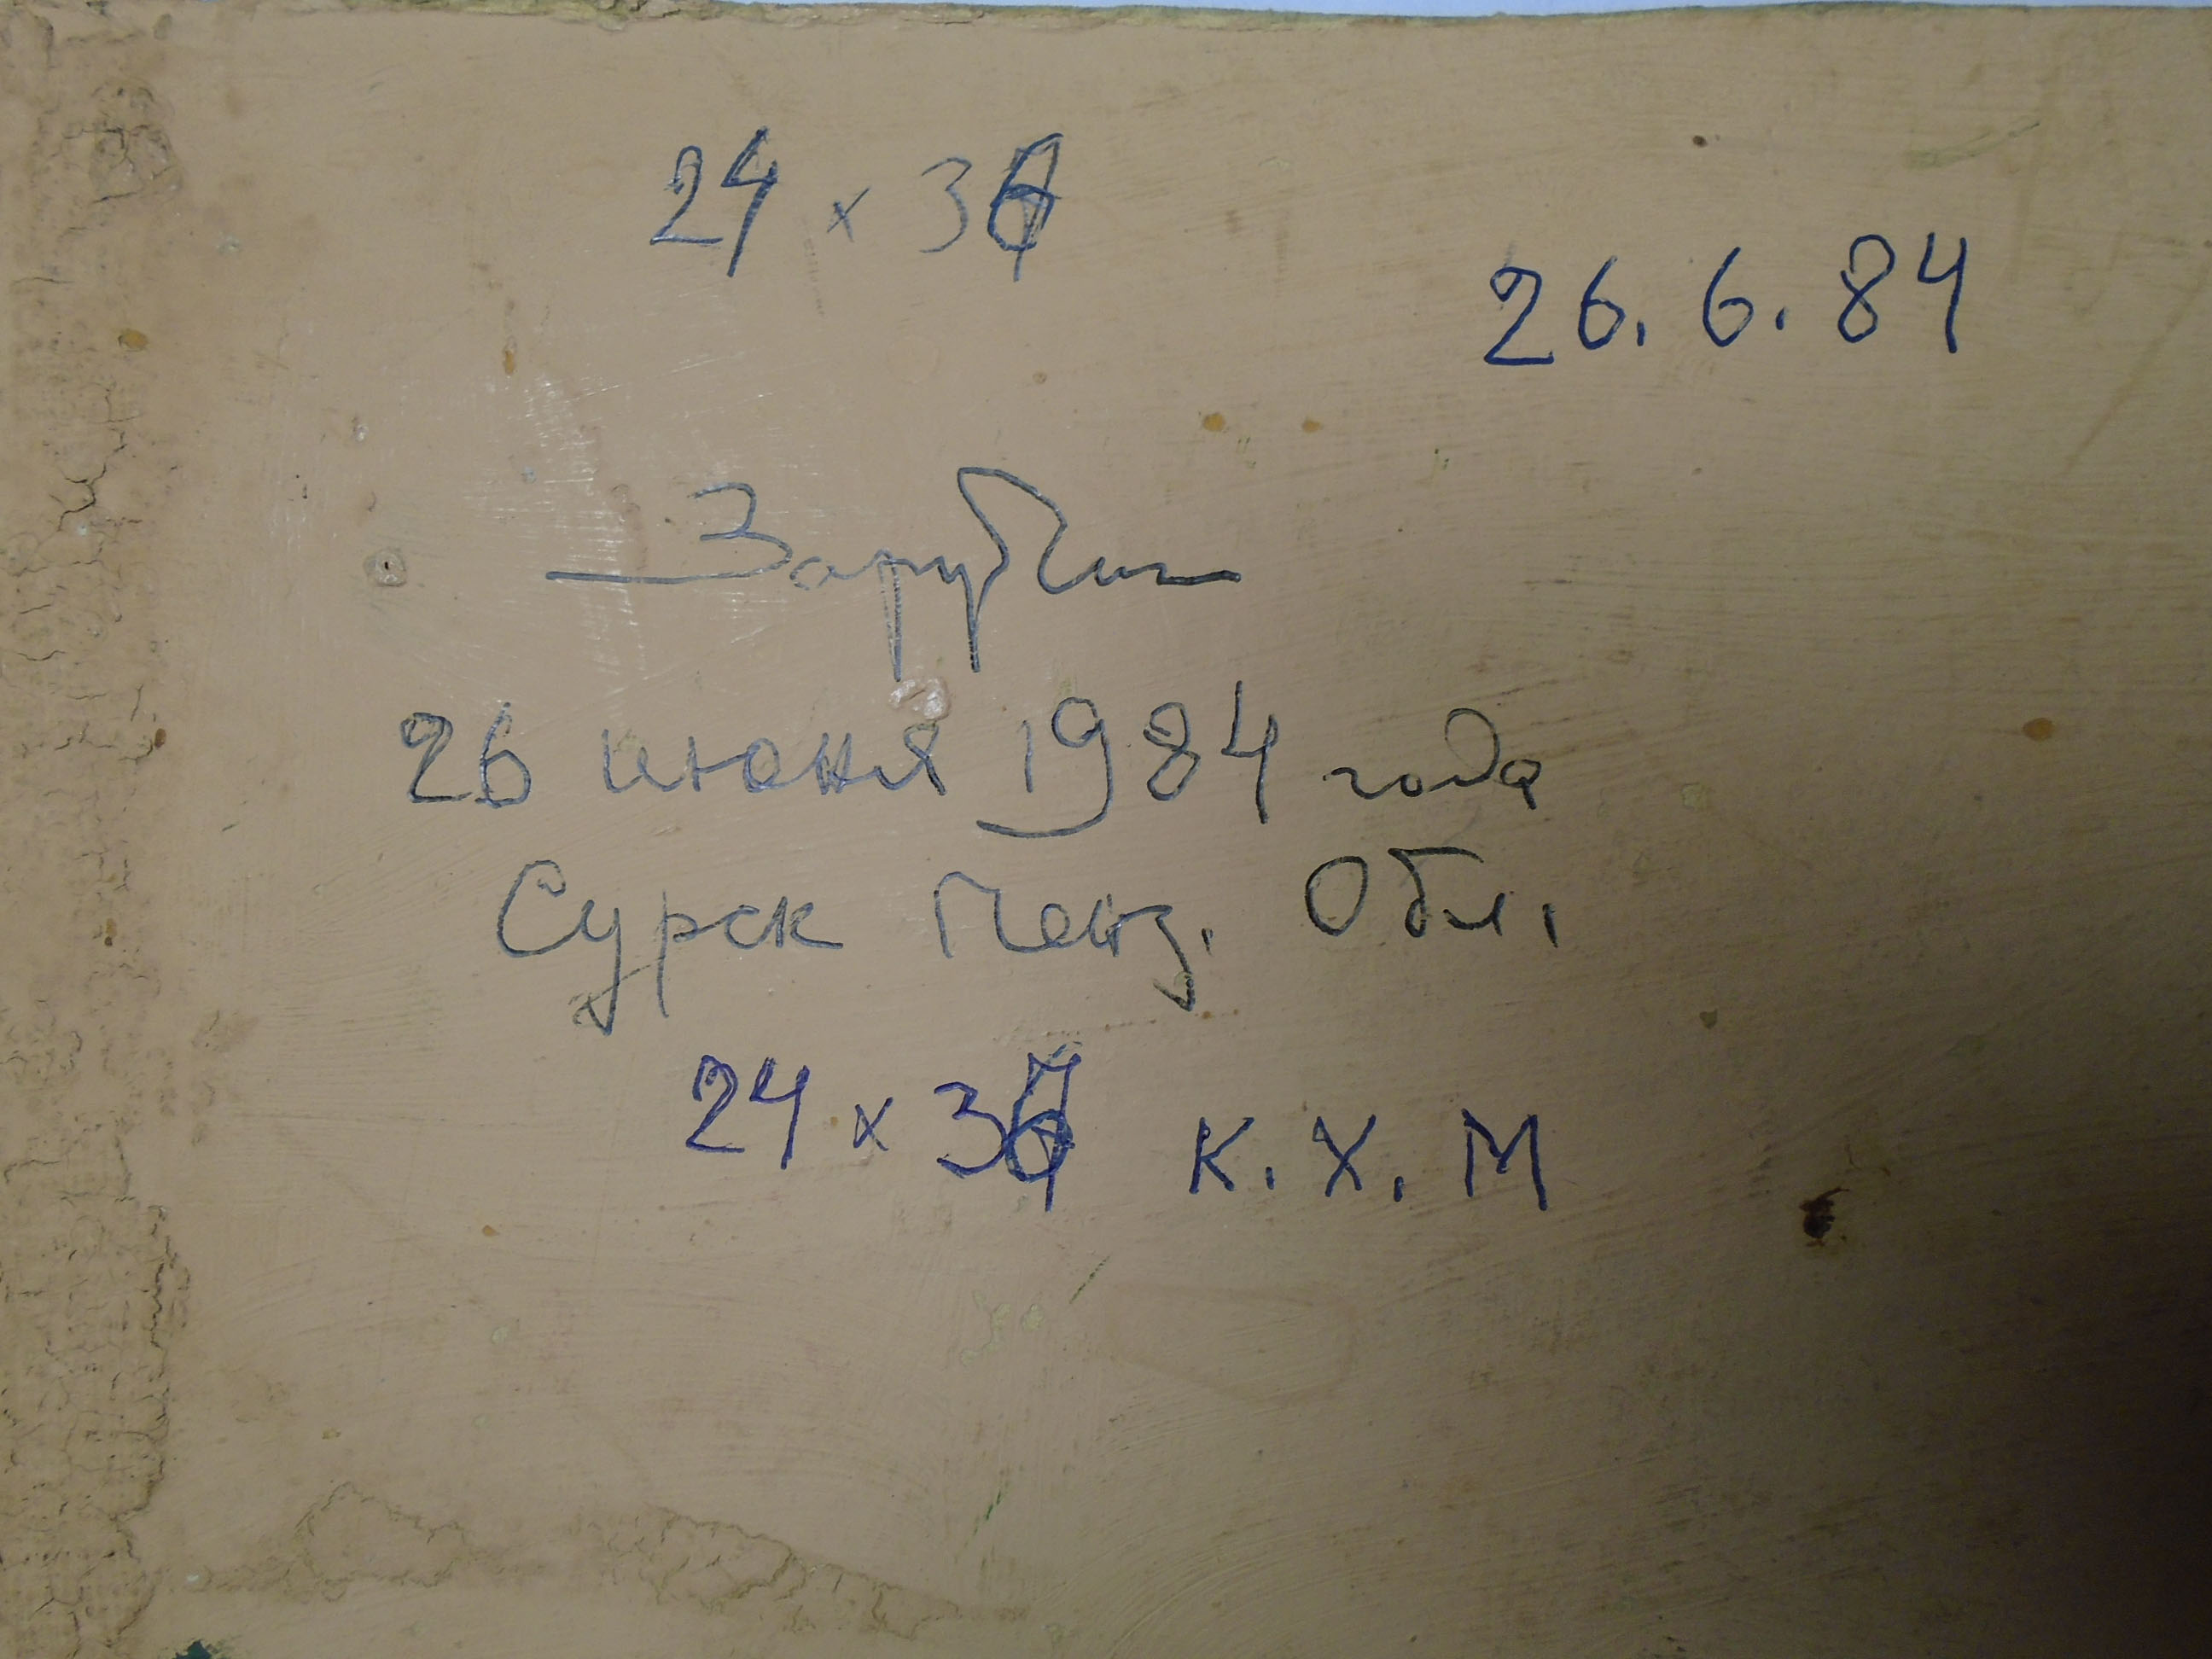 24 x 36
26. 6. 84
Зарубин
26 июня 1984 года
Сурск Пенз. Обл.
24 x 36 К. Х. М